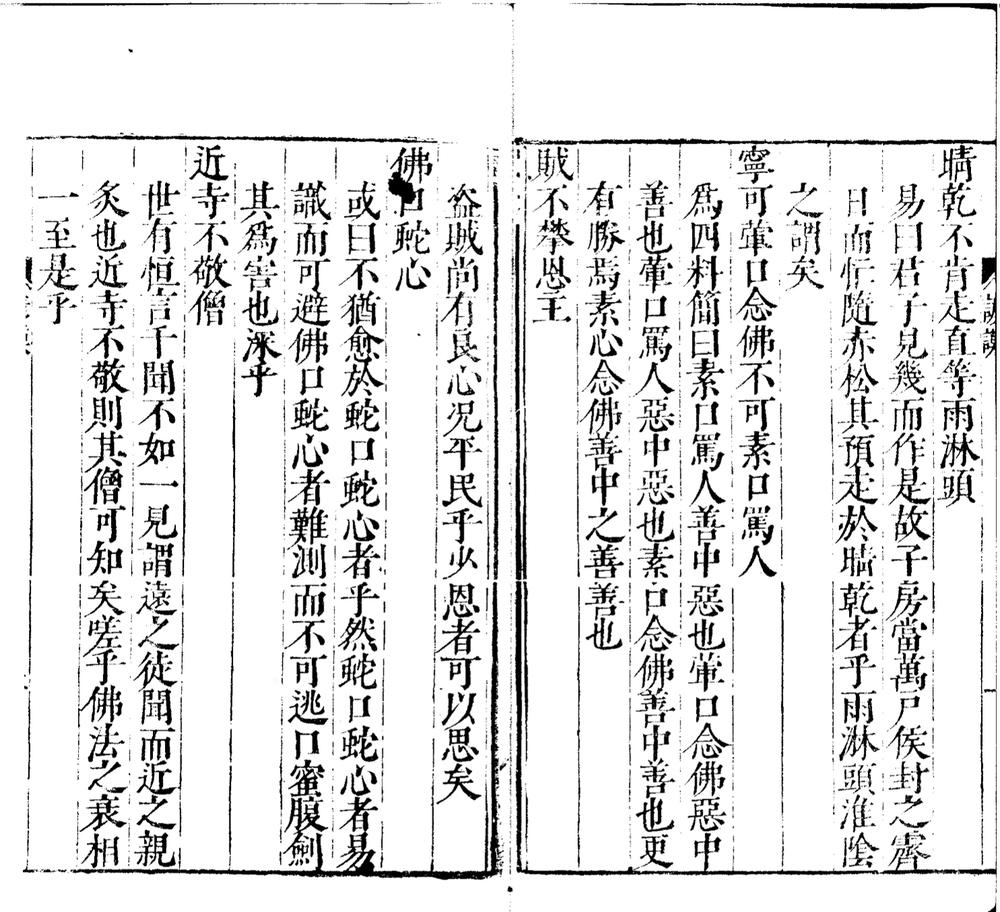 晴乾不肯走直等雨淋頭
易曰君子見幾而作是故子房當萬戶侯封之霽
日而怳隨赤松其預走於晴乾者乎雨淋頭淮陰
之謂矣
寧可葷口念佛不可素口罵人
爲四料簡曰素口罵人善中惡也葷口念佛惡中
善也葷口罵人惡中惡也素口念佛善中善也更
有勝焉素心念佛善中之善善也
賊不攀恩主
盗賊尚有良心况平民乎少恩者可以思矣
佛口蛇心
或曰不猶愈於蛇口蛇心者乎然蛇口蛇心者易
識而可避佛口蛇心者難測而不可逃口蜜腹劍
其爲害也深乎
近寺不敬僧
世有恒言千聞不如一見謂遠之徒聞而近之親
炙也近寺不敬則其僧可知矣嗟乎佛法之衰相
一至是乎